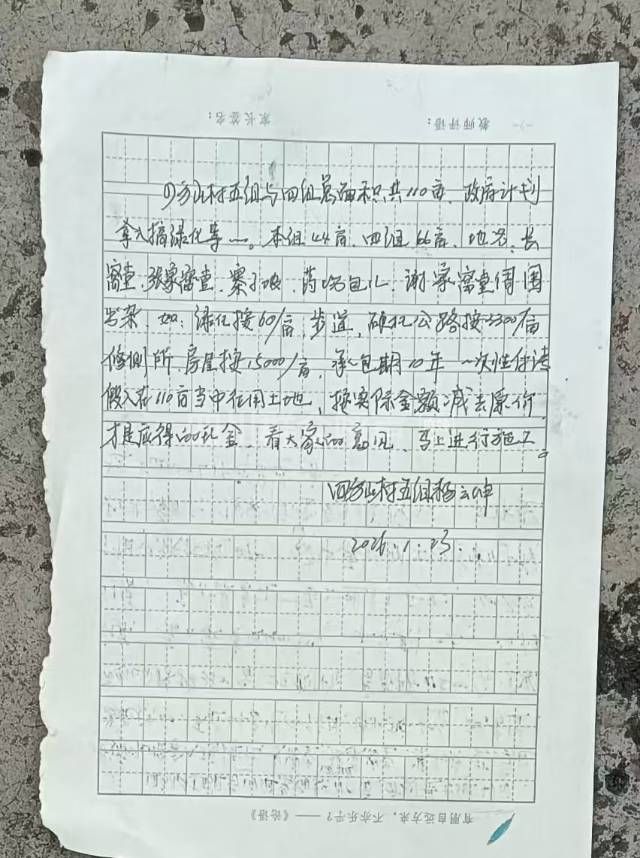 教师评语： 家长签名：
四方山村五组与四组总面积共110亩、政府计划
拿入搞绿化等一。本组44亩，四组66亩，地名，长
窖堂，张家窖堂，寨子坡，药场包儿，谢家窖堂周围
如：绿化按60/亩，步道，硬化公路按3300/亩
修厕所，房屋按15000/亩，承包期10年 一次性付清
假入在110亩当中在用土地，按实际金额减去原价，
才是应得的租金，看大家的意见，马上进行施工。
四方山村五组杨云中
2026.1.23.
有朋自远方来，不亦乐乎？——《论语》